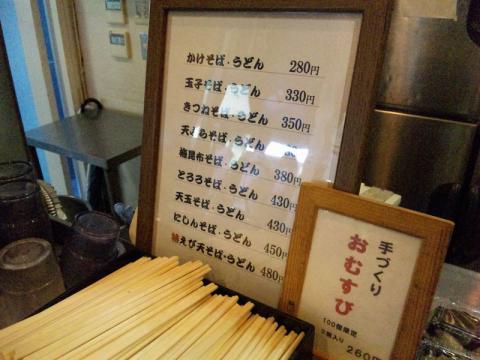 かけそば・うどん 280円
玉子そば・うどん 330円
きつねそば・うどん 350円
天ぷらそば・うどん
梅昆布そば・うどん 380円
とろろそば・うどん 430円
天玉そば・うどん 430円
にしんそば・うどん 450円
えび天そば・うどん 480円
手づくり
おむすび
100個限定
2個入り 260円